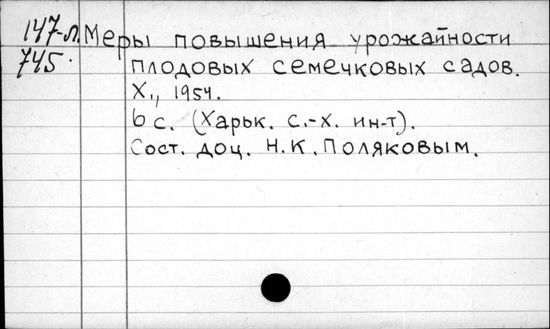 147-л. Меры повышения урожайности
745. плодовых семечковых садов.
Х., 1954.
6 с. (Харьк. с.-х. ин-т).
Сост. доц. Н.К. Поляковым.